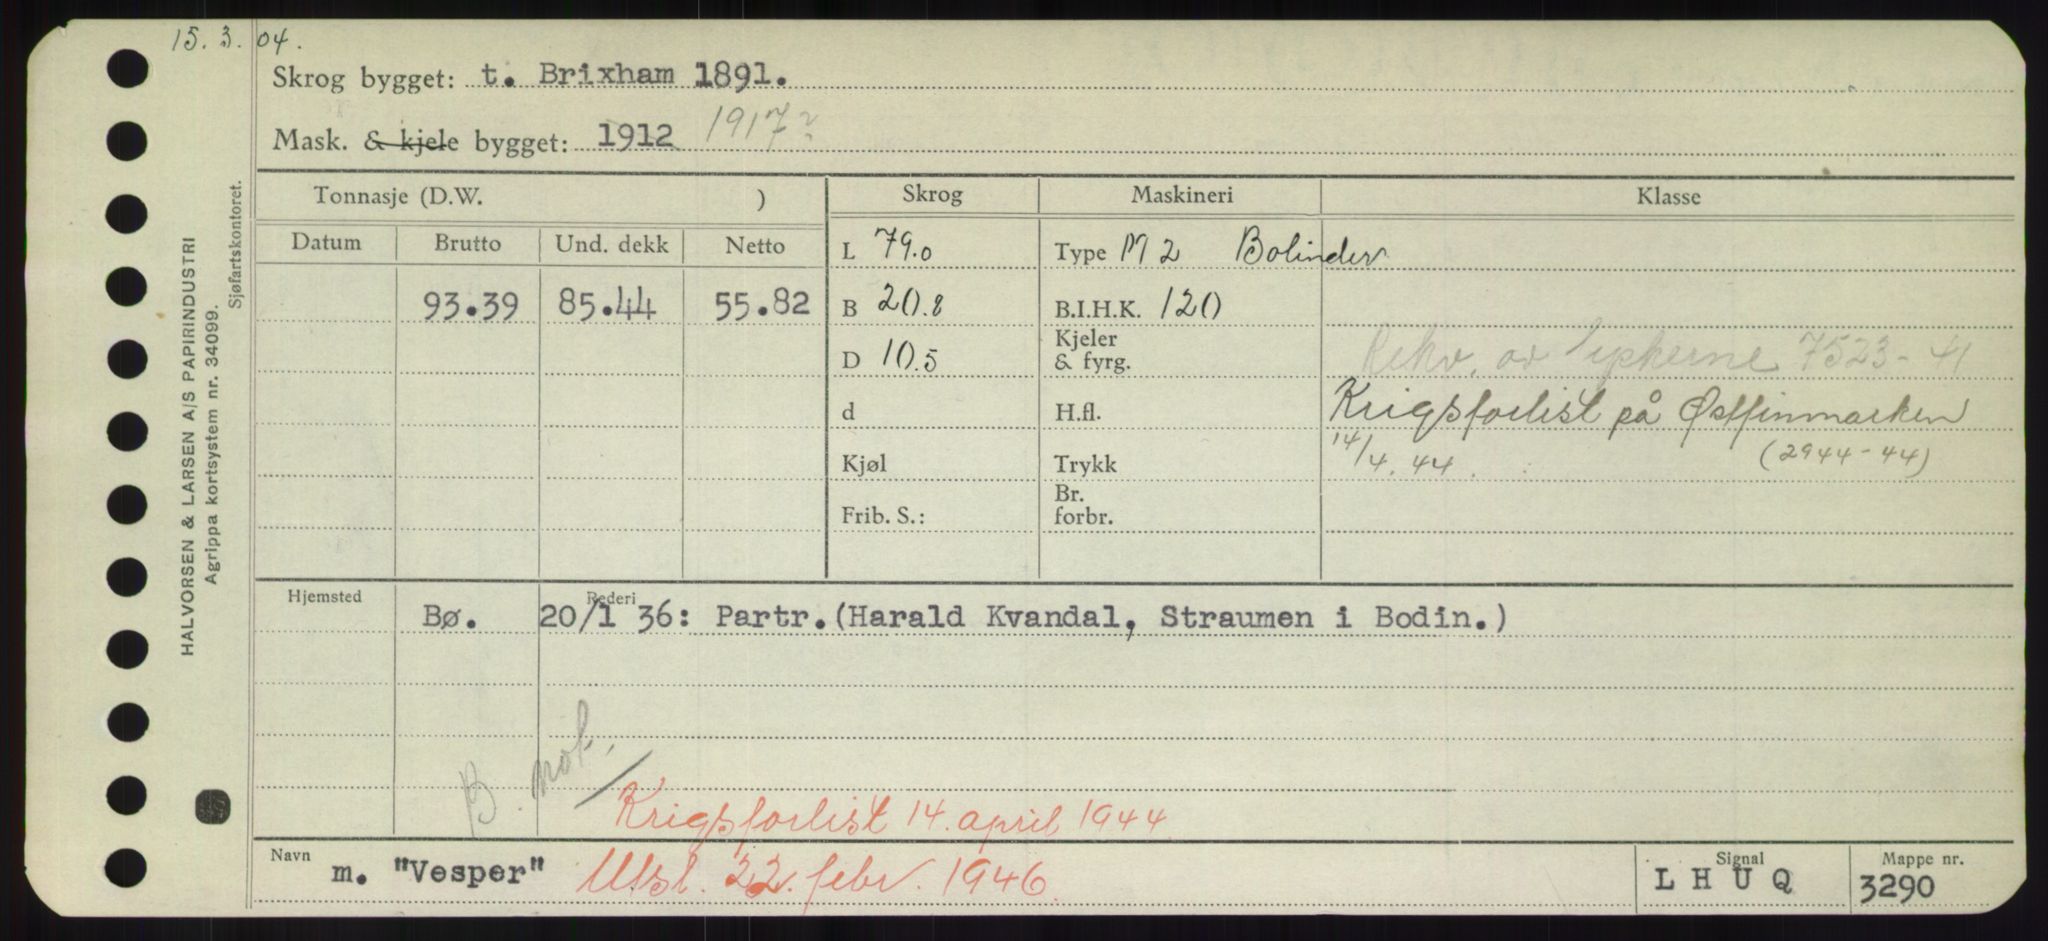 15. 3. 04.
Skrog bygget: t. Brixham 1891.
Mask. & kjele bygget: 1912 1917?
Tonnasje (D.W. ) Skrog Maskineri Klasse
Datum Brutto Und. dekk Netto
L 79.0 Type M 2 Bolinder
93.39 85.44 55.82 B 20.8 B.I.H.K. 120
D 10.5 Kjeler & fyrg. Rekv. av tyskerne 7523-41
d H.fl. Krigsforlist på Østfinmarken
14/4. 44. (2944-44)
Kjøl Trykk
Frib. S.: Br. forbr.
Hjemsted Rederi
Bø. 20/1 36: Partr.(Harald Kvandal, Straumen i Bodin.)
B.
Krigsforlist 14. april 1944
Navn m. "Vesper" Utsl. 22. febr. 1946. Signal L H U Q Mappe nr. 3290
HALVORSEN & LARSEN A/S PAPIRINDUSTRI
Agrippa kortsystem nr. 34099.
Sjøfartskontoret.